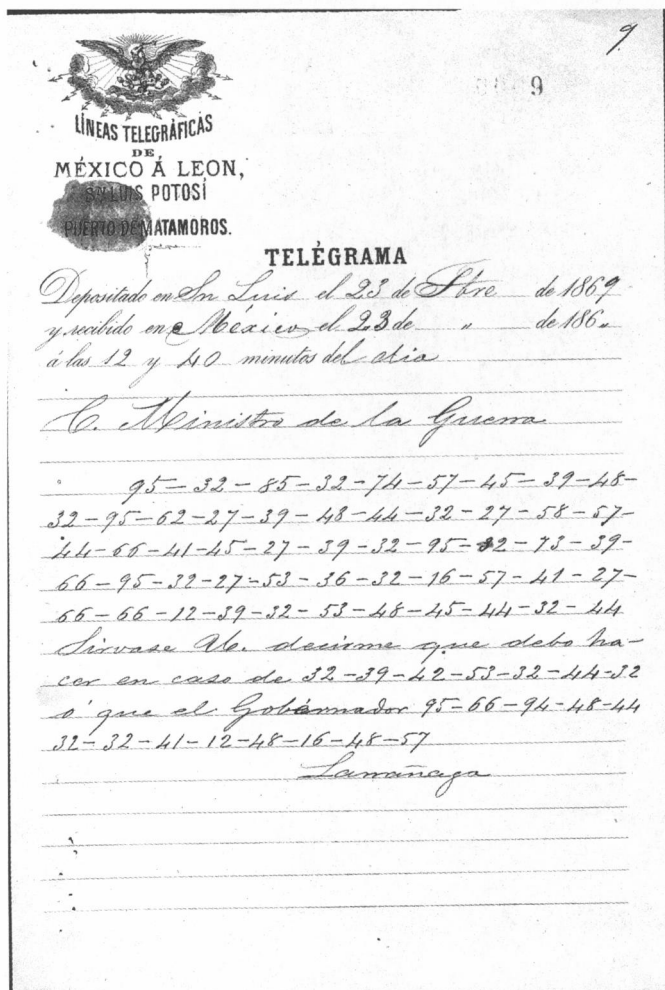 9.
9
LÍNEAS TELEGRÁFICAS
DE
MÉXICO Á LEON,
SN LUIS POTOSÍ
PUERTO DE MATAMOROS.
TELÉGRAMA
Depositado en Sn Luis el 23 de Sbre de 1869
y recibido en México el 23 de " de 186"
á las 12 y 40 minutos del dia
C. Ministro de la Guerra
95-32-85-32-74-57-45-39-48-
32-95-62-27-39-48-44-32-27-58-57-
44-66-41-45-27-39-32-95-32-73-39-
66-95-32-27-53-36-32-16-57-41-27-
66-66-12-39-32-53-48-45-44-32-44
Sirvase U. decirme que debo ha-
cer en caso de 32-39-42-53-32-44-32
ó que el Gobernador 95-66-94-48-44
32-32-41-12-48-16-48-57
Larrañaga